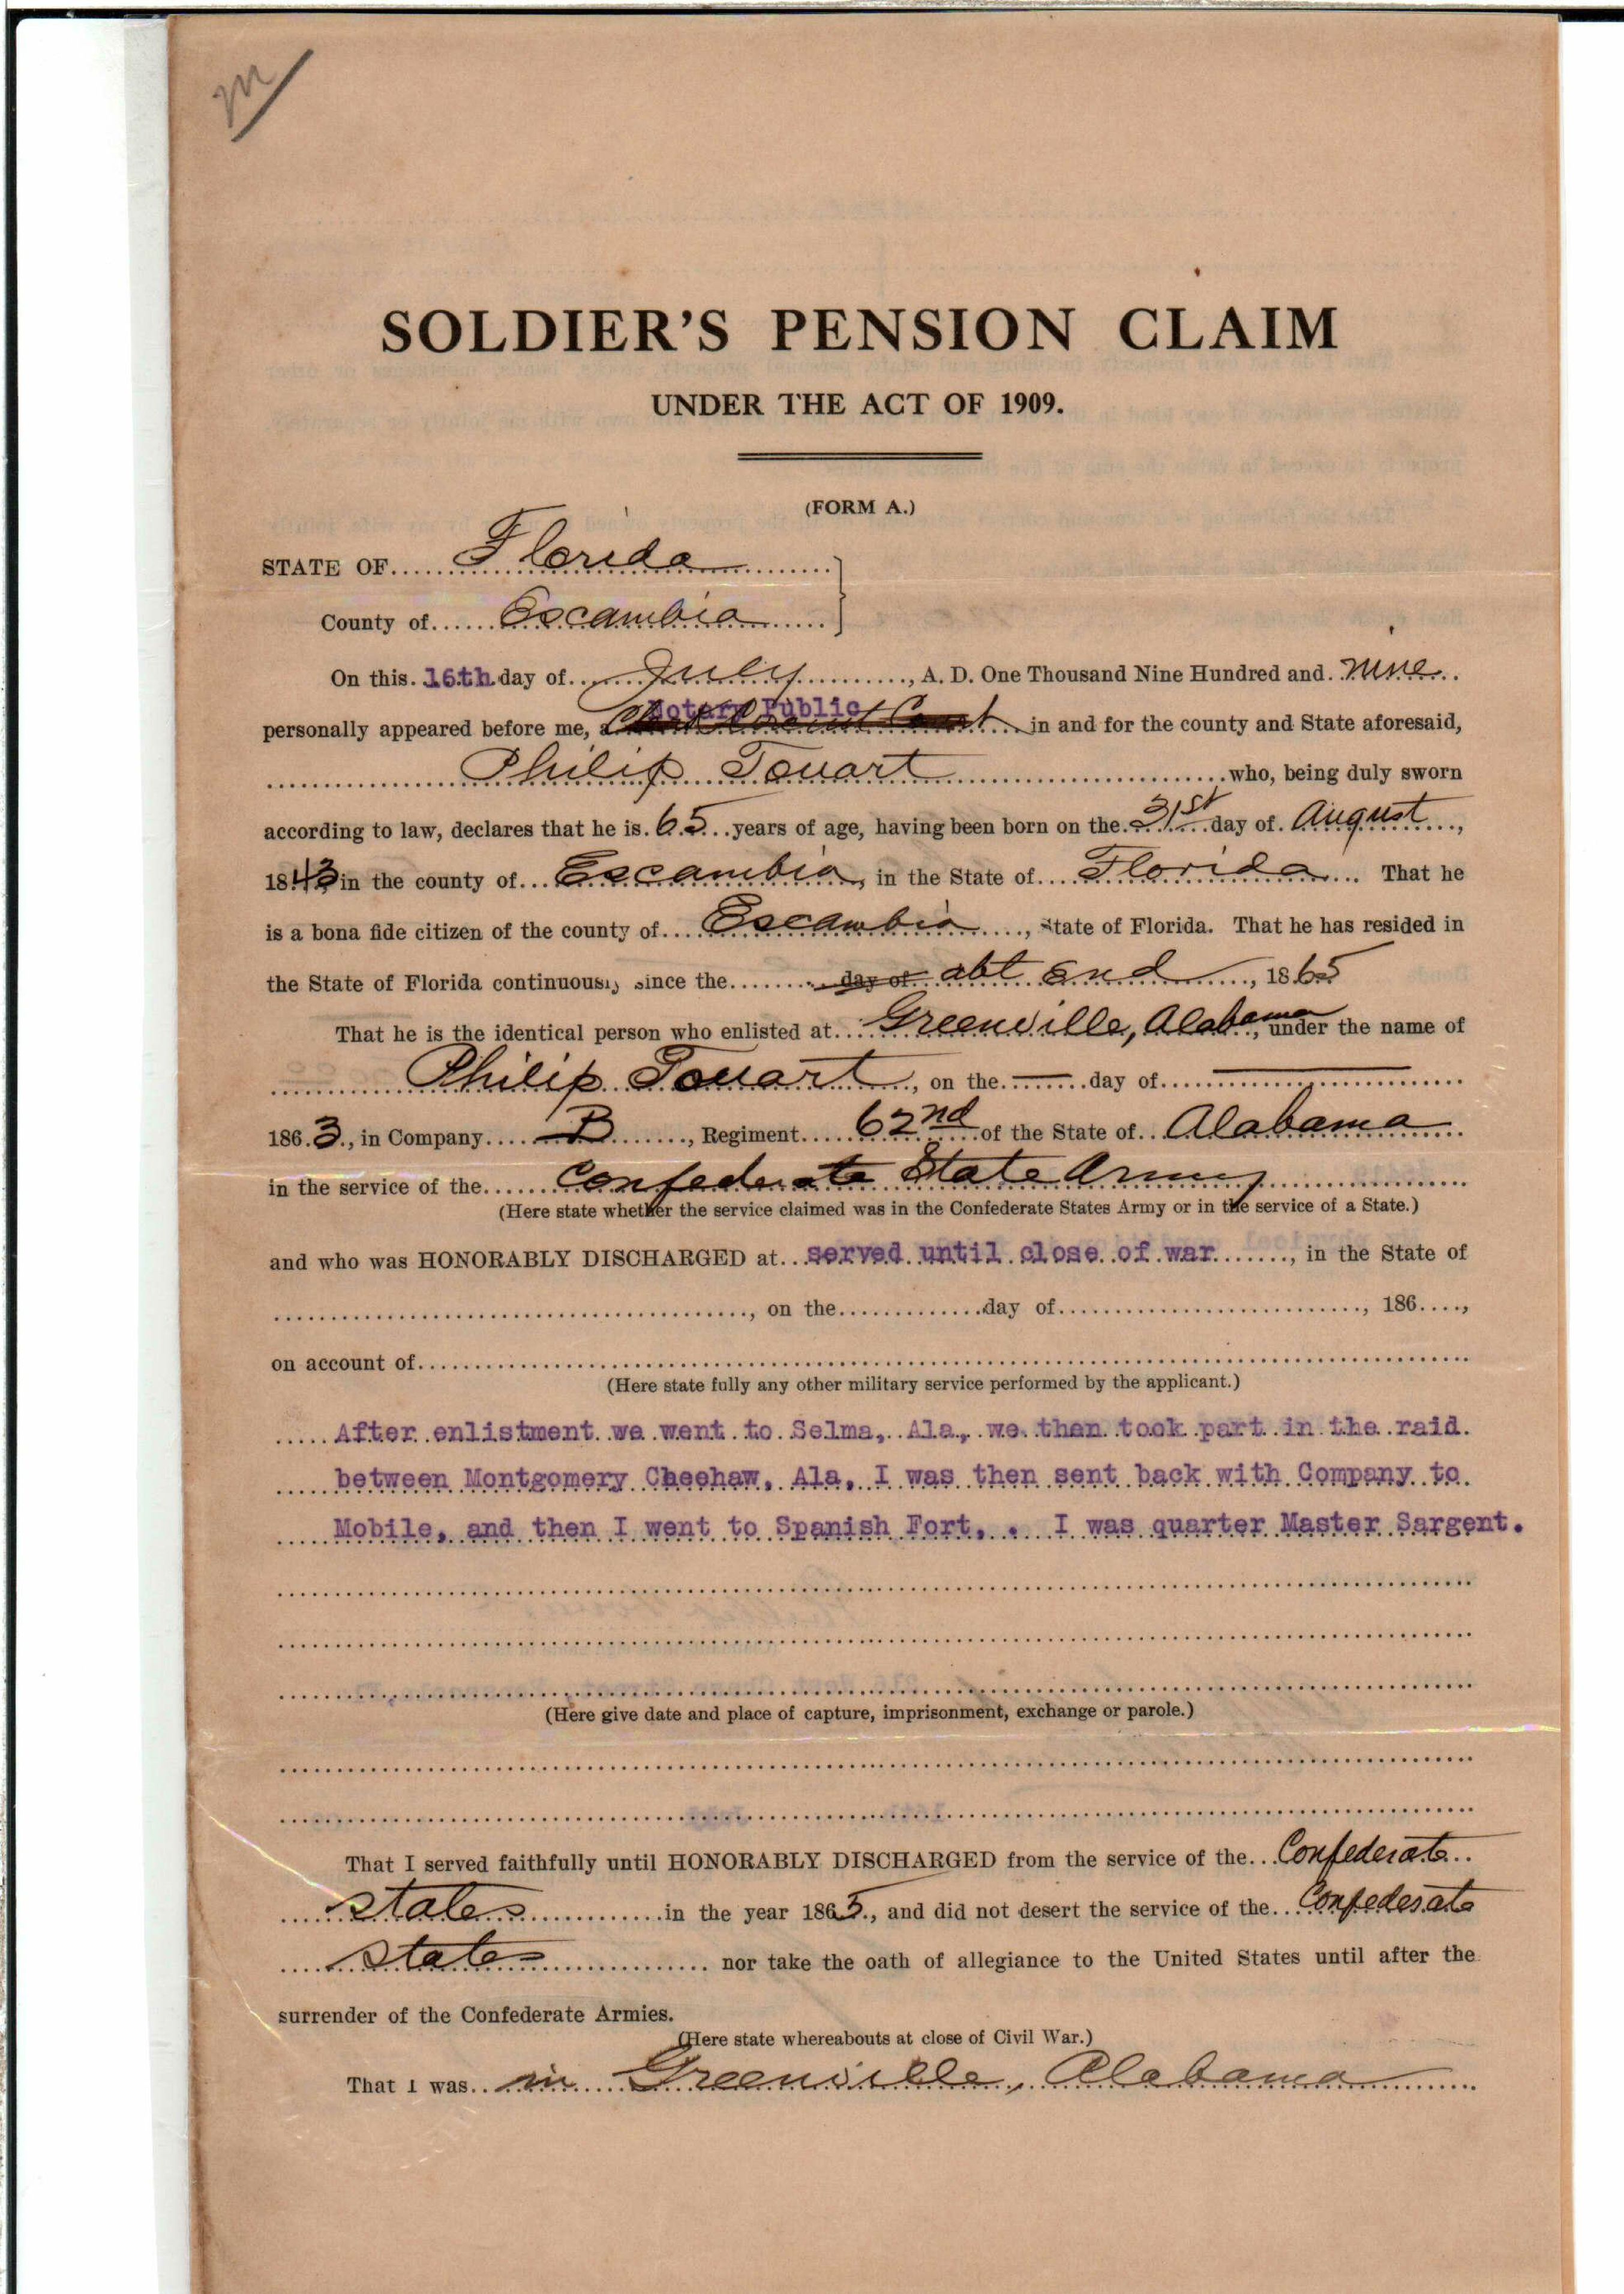 m
SOLDIER'S PENSION CLAIM
UNDER THE ACT OF 1909.
(FORM A.)
STATE OF Florida
County of Escambia
On this 16th day of July, A. D. One Thousand Nine Hundred and nine
personally appeared before me, a Clerk Circuit Court Notary Public in and for the county and State aforesaid,
Philip Touart who, being duly sworn
according to law, declares that he is 65 years of age, having been born on the 31st day of August,
1843 in the county of Escambia, in the State of Florida. That he
is a bona fide citizen of the county of Escambia, State of Florida. That he has resided in
the State of Florida continuously since the day of abt end, 1865
That he is the identical person who enlisted at Greenville, Alabama, under the name of
Philip Touart, on the — day of —
1863, in Company B, Regiment 62nd of the State of Alabama
in the service of the Confederate State Army
(Here state whether the service claimed was in the Confederate States Army or in the service of a State.)
and who was HONORABLY DISCHARGED at served until close of war, in the State of
, on the day of, 186,
on account of
(Here state fully any other military service performed by the applicant.)
After enlistment we went to Selma, Ala, we then took part in the raid
between Montgomery Cheehaw, Ala, I was then sent back with Company to
Mobile, and then I went to Spanish Fort, . I was quarter Master Sargent.
(Here give date and place of capture, imprisonment, exchange or parole.)
That I served faithfully until HONORABLY DISCHARGED from the service of the Confederate
States in the year 1865, and did not desert the service of the Confederate
States nor take the oath of allegiance to the United States until after the
surrender of the Confederate Armies.
(Here state whereabouts at close of Civil War.)
That I was in Greenville, Alabama